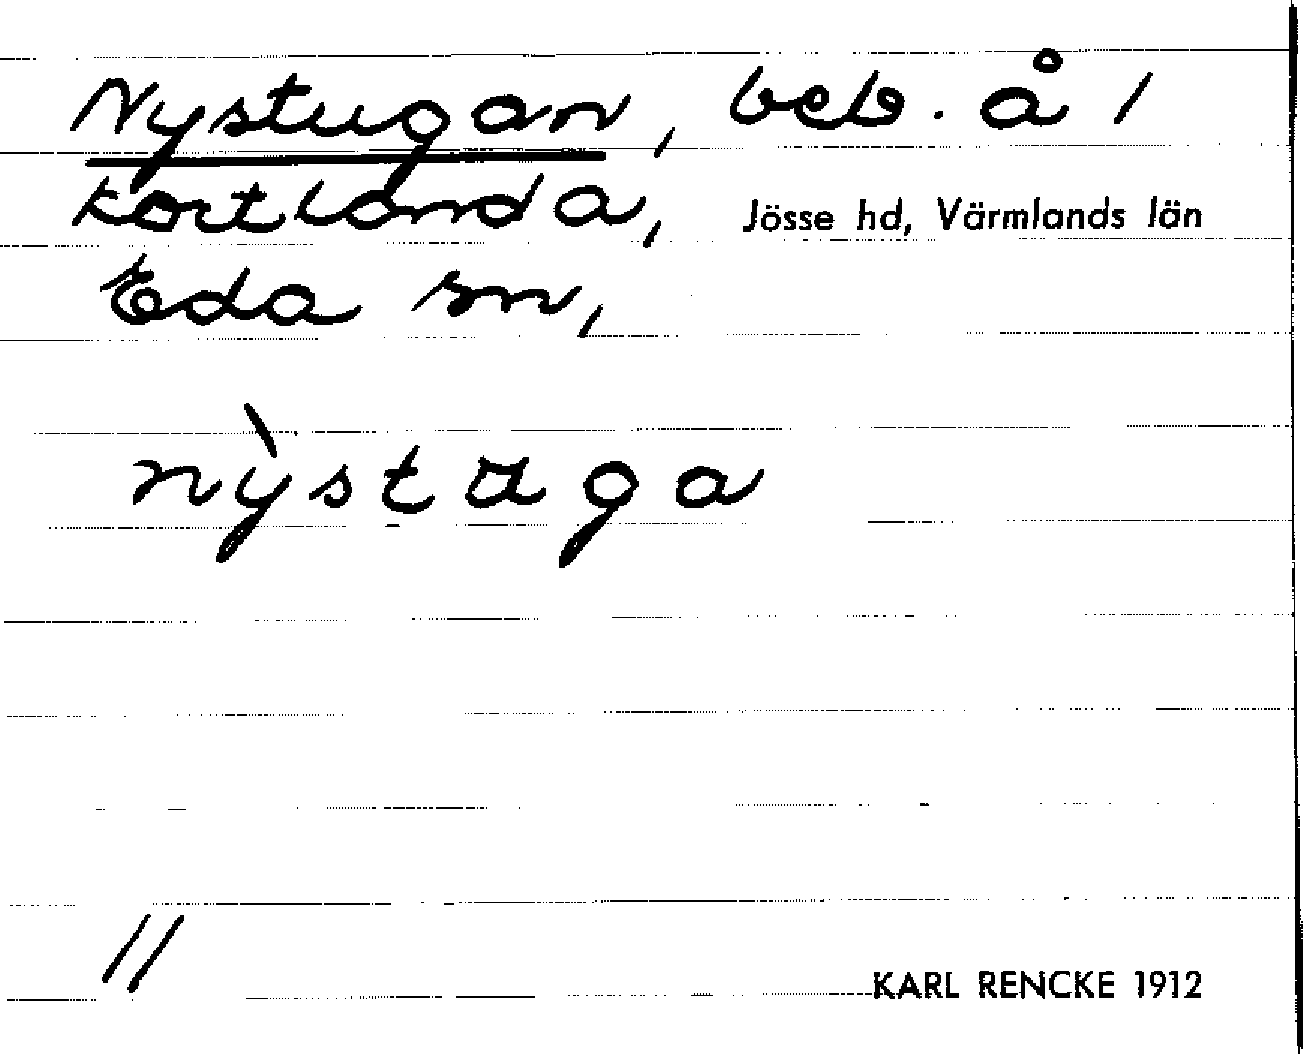 Nystugan, beb. å 1
Kortlanda, Jösse hd, Värmlands län
Eda sn,
nỳstuga
11
KARL RENCKE 1912